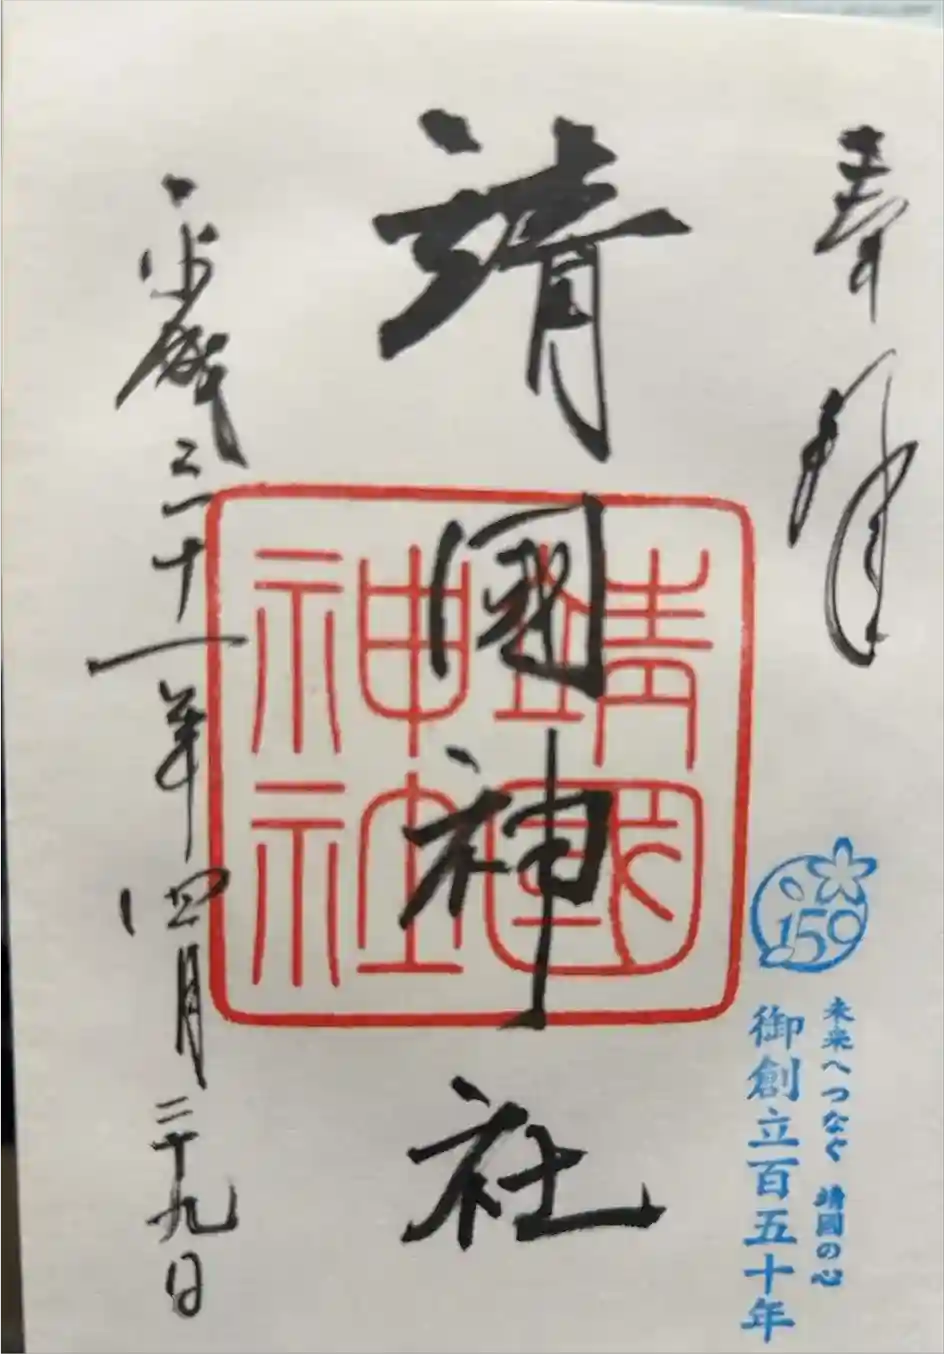 奉拝
靖國神社
靖國神社
平成三十一年四月二十九日
150
未来へつなぐ 靖國の心
御創立百五十年